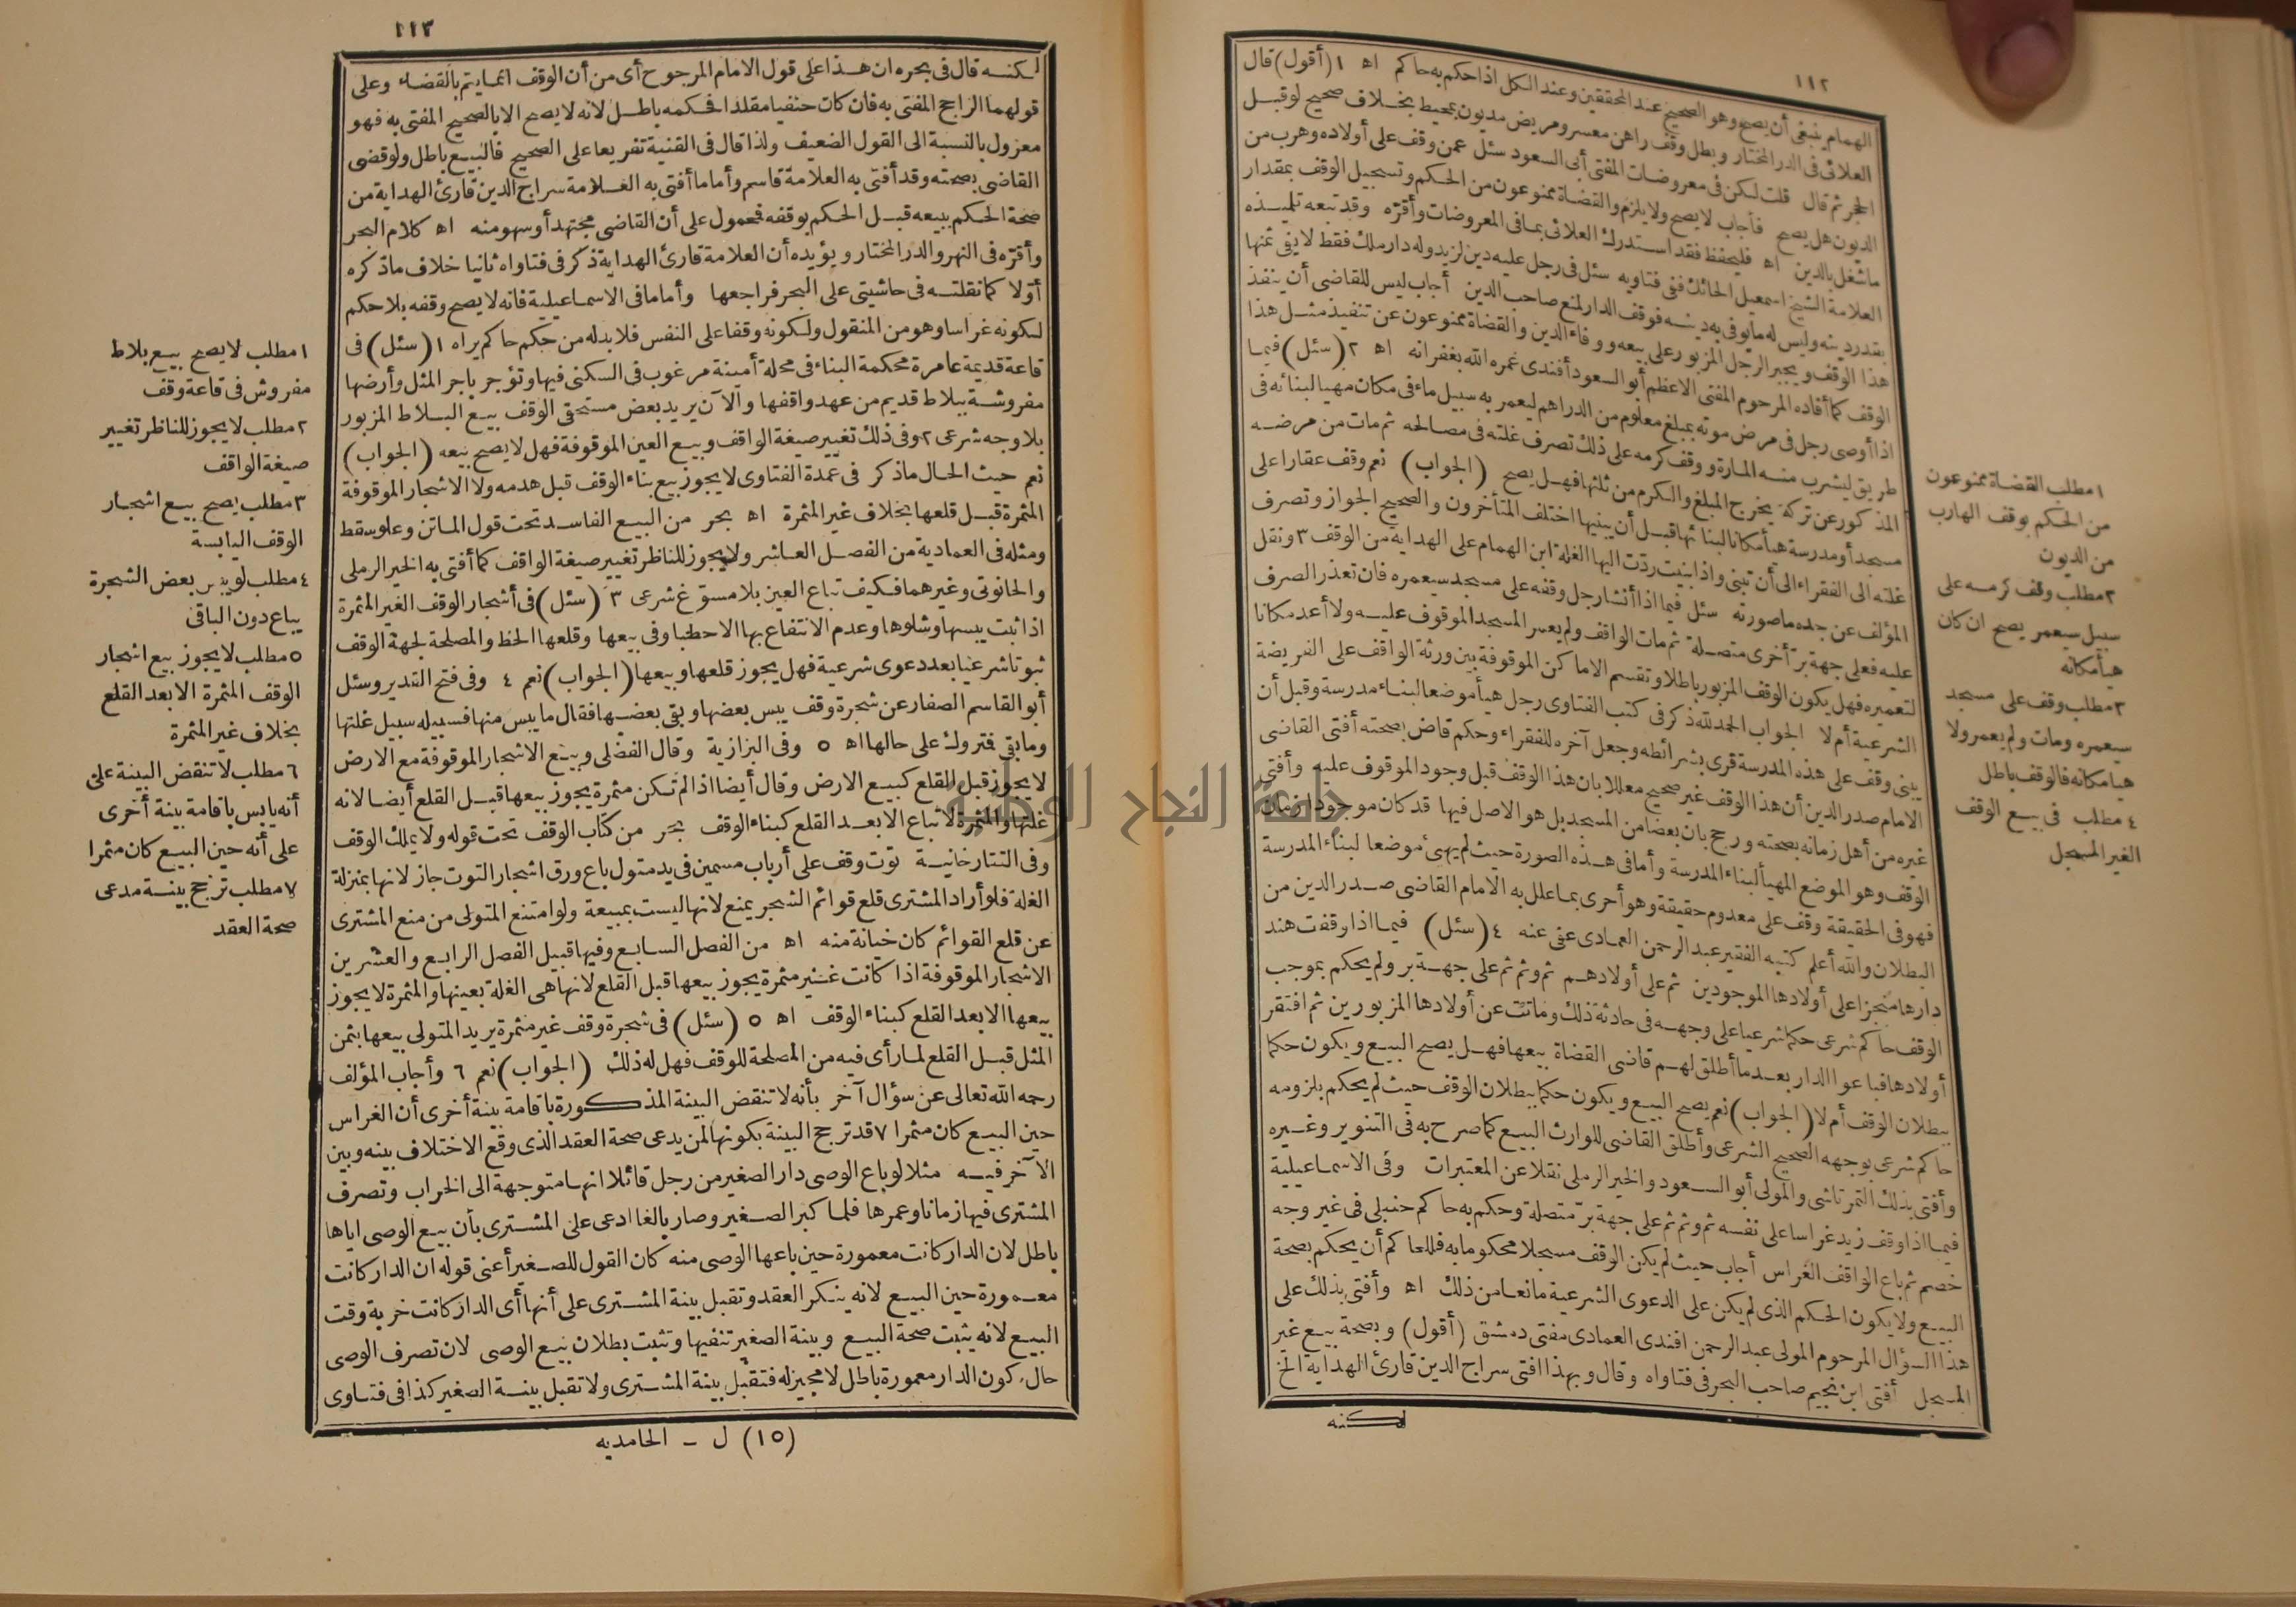 ١١٢
الهمام ينبغى أن يصح وهو الصحيح عند المحققين وعند الكل اذا حكم به حاكم اه ١ (أقول) قال
العلائى فى الدر المختار وبطل وقف راهن معسر ومريض مديون بمحيط بخلاف صحيح لو قبل
الحجر ثم قال قلت لكن فى معروضات المفتى أبى السعود سئل عمن وقف على أولاده وهرب من
الديون هل يصح فأجاب لا يصح ولا يلزم والقضاة ممنوعون من الحكم وتسجيل الوقف بمقدار
ما شغل بالدين اه فليحفظ فقد استدرك العلائى بما فى المعروضات وأقره وقد تبعه تلميذه
العلامة الشيخ اسمعيل الحائك ففى فتاويه سئل فى رجل عليه دين لزيد وله دار ملك فقط لا يفى ثمنها
بقدر دينه وليس له ما يوفى به دينه فوقف الدار لمنع صاحب الدين أجاب ليس للقاضى أن ينفذ
هذا الوقف ويجبر الرجل المزبور على بيعه ووفاء الدين والقضاة ممنوعون عن تنفيذ مثل هذا
الوقف كما أفاده المرحوم المفتى الاعظم أبو السعود أفندى غمره الله بغفرانه اه ٢ (سئل) فيما
اذا أوصى رجل فى مرض موته بمبلغ معلوم من الدراهم ليعمر به سبيل ماء فى مكان مهيا لبنائه فى
طريق ليشرب منه المارة ووقف كرمه على ذلك تصرف غلته فى مصالحه ثم مات من مرضه
المذكور عن تركة يخرج المبلغ والكرم من ثلثها فهل يصح (الجواب) نعم وقف عقارا على
مسجد أو مدرسة هيأ مكانا لبنائها قبل أن يبنيها اختلف المتأخرون والصحيح الجواز وتصرف
غلته الى الفقراء الى أن تبنى واذا بنيت ردت اليها الغلة ابن الهمام على الهداية من الوقف ٣ ونقل
المؤلف عن جده ما صورته سئل فيما اذا أنشأ رجل وقفه على مسجد سيعمره فان تعذر الصرف
عليه فعلى جهة بر أخرى متصلة ثم مات الواقف ولم يعمر المسجد الموقوف عليه ولا أعد مكانا
لتعميره فهل يكون الوقف المزبور باطلا وتقسم الاماكن الموقوفة بين ورثة الواقف على الفريضة
الشرعية أم لا الجواب الحمد لله ذكر فى كتب الفتاوى رجل هيأ موضعا لبناء مدرسة وقبل أن
يبنى وقف على هذه المدرسة قرى بشرائطه وجعل آخره للفقراء وحكم قاض بصحته أفتى القاضى
الامام صدر الدين أن هذا الوقف غير صحيح معللا بان هذا الوقف قبل وجود الموقوف عليه وأفتى
غيره من أهل زمانه بصحته ورجح بان بعضا من المسجد بل هو الاصل فيها قد كان موجودا زمان
الوقف وهو الموضع المهيأ لبناء المدرسة وأما فى هذه الصورة حيث لم يهئ موضعا لبناء المدرسة
فهو فى الحقيقة وقف على معدوم حقيقة وهو أحرى بما علل به الامام القاضى صدر الدين من
البطلان والله أعلم كتبه الفقير عبد الرحمن العمادى عفى عنه ٤ (سئل) فيما اذا وقفت هند
دارها منجزا على أولادها الموجودين ثم على أولادهم ثم وثم ثم على جهة بر ولم يحكم بموجب
الوقف حاكم شرعى حكما شرعيا على وجهه فى حادثة ذلك وماتت عن أولادها المزبورين ثم افتقر
أولادها فباعوا الدار بعد ما أطلق لهم قاضى القضاة بيعها فهل يصح البيع ويكون حكما
ببطلان الوقف أم لا (الجواب) نعم يصح البيع ويكون حكما ببطلان الوقف حيث لم يحكم بلزومه
حاكم شرعى بوجهه الصحيح الشرعى وأطلق القاضى للوارث البيع كما صرح به فى التنوير وغيره
وأفتى بذلك التمرتاشى والمولى أبو السعود والخير الرملى نقلا عن المعتبرات وفى الاسماعيلية
فيما اذا وقف زيد غراسا على نفسه ثم وثم ثم على جهة بر متصلة وحكم به حاكم حنبلى فى غير وجه
خصم ثم باع الواقف الغراس أجاب حيث لم يكن الوقف مسجلا محكوما به فللحاكم أن يحكم بصحة
البيع ولا يكون الحكم الذى لم يكن على الدعوى الشرعية مانعا من ذلك اه وأفتى بذلك على
هذا السؤال المرحوم المولى عبد الرحمن افندى العمادى مفتى دمشق (أقول) وبصحة بيع غير
المسجل أفتى ابن نجيم صاحب البحر فى فتاواه وقال وبهذا افتى سراج الدين قارئ الهداية الخ
لكنه
١ مطلب القضاة ممنوعون
من الحكم بوقف الهارب
من الديون
٢ مطلب وقف كرمه على
سبيل سيعمر يصح ان كان
هيأ مكانه
٣ مطلب وقف على مسجد
سيعمره ومات ولم يعمر ولا
هيا مكانه فالوقف باطل
٤ مطلب فى بيع الوقف
الغير المسجل
١١٣
لكنه قال فى بحره ان هذا على قول الامام المرجوح أى من أن الوقف انما يتم بالقضاء وعلى
قولهما الراجح المفتى به فان كان حنفيا مقلدا فحكمه باطل لانه لا يصح الا بالصحيح المفتى به فهو
معزول بالنسبة الى القول الضعيف ولذا قال فى القنية تفريعا على الصحيح فالبيع باطل ولو قضى
القاضى بصحته وقد أفتى به العلامة قاسم وأما ما أفتى به العلامة سراج الدين قارئ الهداية من
صحة الحكم ببيعه قبل الحكم بوقفه فمحمول على أن القاضى مجتهد أو سهو منه اه كلام البحر
وأقره فى النهر والدر المختار ويؤيده أن العلامة قارئ الهداية ذكر فى فتاواه ثانيا خلاف ما ذكره
أولا كما نقلته فى حاشيتى على البحر فراجعها وأما ما فى الاسماعيلية فانه لا يصح وقفه بلا حكم
لكونه غراسا وهو من المنقول ولكونه وقفا على النفس فلا بد له من حكم حاكم يراه ١ (سئل) فى
قاعة قديمة عامرة محكمة البناء فى محلة أمينة مرغوب فى السكنى فيها وتؤجر باجر المثل وأرضها
مفروشة ببلاط قديم من عهد واقفها والآن يريد بعض مستحقى الوقف بيع البلاط المزبور
بلا وجه شرعى ٢ وفى ذلك تغيير صيغة الواقف وبيع العين الموقوفة فهل لا يصح بيعه (الجواب)
نعم حيث الحال ما ذكر فى عمدة الفتاوى لا يجوز بيع بناء الوقف قبل هدمه ولا الاشجار الموقوفة
المثمرة قبل قلعها بخلاف غير المثمرة اه بحر من البيع الفاسد تحت قول الماتن وعلو سقط
ومثله فى العمادية من الفصل العاشر ولا يجوز للناظر تغيير صيغة الواقف كما أفتى به الخير الرملى
والحانوتى وغيرهما فكيف تباع العين بلا مسوغ شرعى ٣ (سئل) فى أشجار الوقف الغير المثمرة
اذا ثبت يبسها وشلوها وعدم الانتفاع بها الا حطبا وفى بيعها وقلعها الحظ والمصلحة لجهة الوقف
ثبوتا شرعيا بعد دعوى شرعية فهل يجوز قلعها وبيعها (الجواب) نعم ٤ وفى فتح القدير وسئل
أبو القاسم الصفار عن شجرة وقف يبس بعضها وبقى بعضها فقال ما يبس منها فسبيله سبيل غلتها
وما بقى فمتروك على حالها اه ٥ وفى البزازية وقال الفضلى وبيع الاشجار الموقوفة مع الارض
لا يجوز قبل القلع كبيع الارض وقال أيضا اذا لم تكن مثمرة يجوز بيعها قبل القلع أيضا لانه
غلتها والمثمرة لا تباع الا بعد القلع كبناء الوقف بحر من كتاب الوقف تحت قوله ولا يملك الوقف
وفى التتارخانية توت وقف على أرباب مسمين فى يد متول باع ورق اشجار التوت جاز لانها بمنزلة
الغلة فلو أراد المشترى قلع قوائم الشجر يمنع لانها ليست بمبيعة ولو امتنع المتولى من منع المشترى
عن قلع القوائم كان خيانة منه اه من الفصل السابع وفيها قبيل الفصل الرابع والعشرين
الاشجار الموقوفة اذا كانت غير مثمرة يجوز بيعها قبل القلع لانها هى الغلة بعينها والمثمرة لا يجوز
بيعها الا بعد القلع كبناء الوقف اه ٥ (سئل) فى شجرة وقف غير مثمرة يريد المتولى بيعها بثمن
المثل قبل القلع لما رأى فيه من المصلحة للوقف فهل له ذلك (الجواب) نعم ٦ وأجاب المؤلف
رحمه الله تعالى عن سؤال آخر بأنه لا تنقض البينة المذكورة باقامة بينة أخرى أن الغراس
حين البيع كان مثمرا ٧ قد ترجح البينة بكونها لمن يدعى صحة العقد الذى وقع الاختلاف بينه وبين
الآخر فيه مثلا لو باع الوصى دار الصغير من رجل قائلا انها متوجهة الى الخراب وتصرف
المشترى فيها زمانا وعمرها فلما كبر الصغير وصار بالغا ادعى على المشترى بأن بيع الوصى اياها
باطل لان الدار كانت معمورة حين باعها الوصى منه كان القول للصغير أعنى قوله ان الدار كانت
معمورة حين البيع لانه ينكر العقد وتقبل بينة المشترى على أنها أى الدار كانت خربة وقت
البيع لانه يثبت صحة البيع وبينة الصغير تنفيها وتثبت بطلان بيع الوصى لان تصرف الوصى
حال كون الدار معمورة باطل لا مجيز له فتقبل بينة المشترى ولا تقبل بينة الصغير كذا فى فتاوى
(١٥) ل - الحامديه
١ مطلب لا يصح بيع بلاط
مفروش فى قاعة وقف
٢ مطلب لا يجوز للناظر تغيير
صيغة الواقف
٣ مطلب يصح بيع اشجار
الوقف اليابسة
٤ مطلب لو يبس بعض الشجرة
يباع دون الباقى
٥ مطلب لا يجوز بيع اشجار
الوقف المثمرة الا بعد القلع
بخلاف غير المثمرة
٦ مطلب لا تنقض البينة على
أنه يابس باقامة بينة أخرى
على أنه حين البيع كان مثمرا
٧ مطلب ترجح بينة مدعى
صحة العقد
جامعة النجاح الوطنية